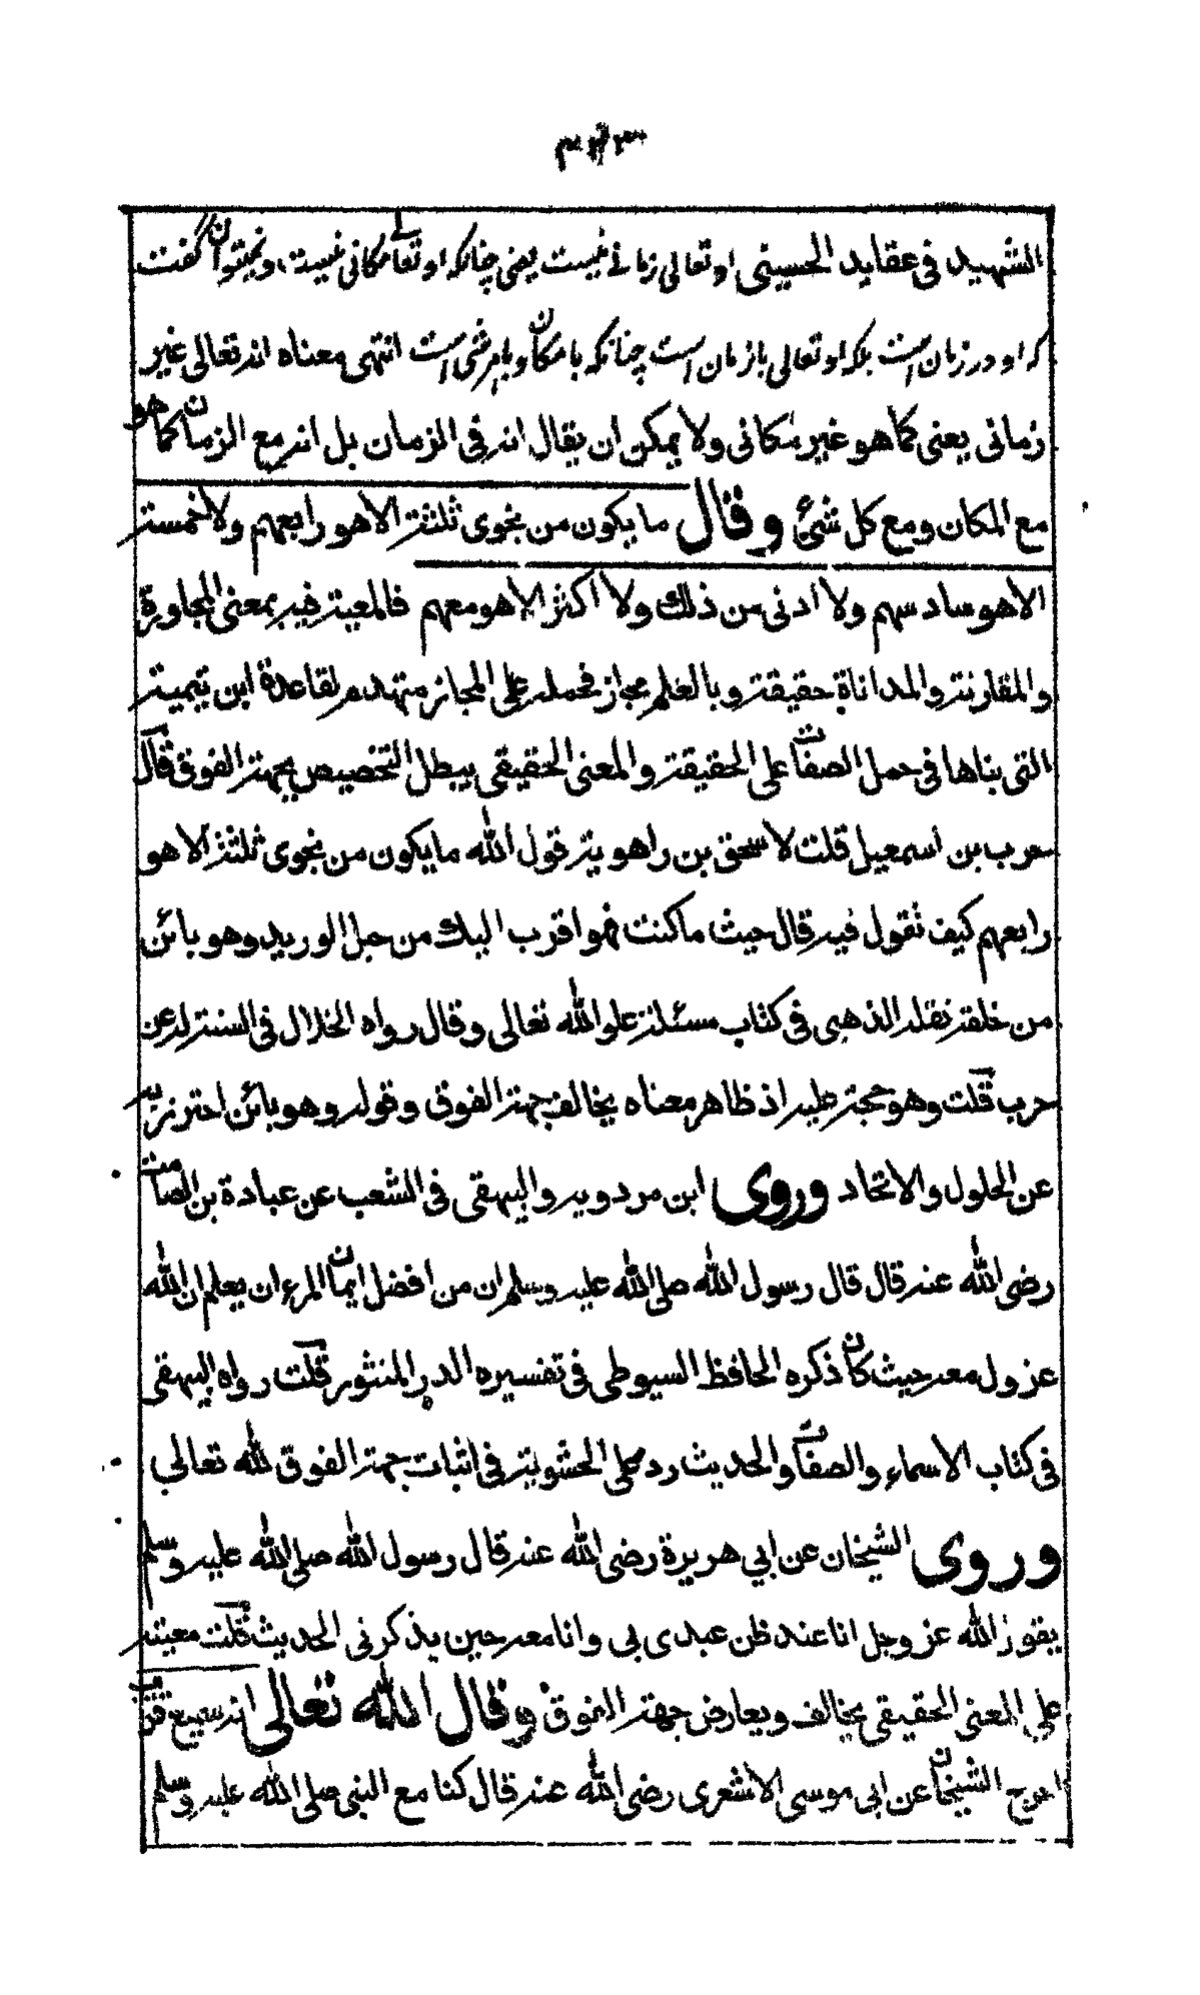 الشهيد في عقايد الحسينى او تعالى زمانے نيست يعنى چنانكه او تعالے مكانى نيست ونميتوان گفت
كه او در زمان است بلكه او تعالى بازمان است چنانكه بامكان وباهر شى است انتهى معناه انه تعالى غير
زمانى يعنى كما هو غير مكانى ولا يمكن ان يقال انه فى الزمان بل انه مع الزمان كما هو
مع المكان ومع كل شئ وقال ما يكون من نجوى ثلثة الا هو رابعهم ولا خمسة
الا هو سادسهم ولا ادنى من ذلك ولا اكثر الا هو معهم فالمعية فيه بمعنى المجاورة
والمقارنة والمداناة حقيقة وبالعلم مجاز فحمله على المجاز منهدم لقاعدة ابن تيمية
التى بناها فى حمل الصفات على الحقيقة والمعنى الحقيقى يبطل التخصيص بجهة الفوق قال
حرب بن اسمعيل قلت لاسحق بن راهوية قول الله ما يكون من نجوى ثلثة الا هو
رابعهم كيف نقول فيه قال حيث ما كنت فهو اقرب اليك من حبل الوريد وهو بائن
من خلقه نقله الذهبى فى كتاب مسئلة علو الله تعالى وقال رواه الخلال فى السنة له عن
حرب قلت وهو حجة عليه اذ ظاهر معناه يخالف جهة الفوق وقوله وهو بائن احترز به
عن الحلول والاتحاد وروى ابن مردويه والبيهقى فى الشعب عن عبادة بن الصامت
رضى الله عنه قال قال رسول الله صلى الله عليه وسلم ان من افضل ايمان المرء ان يعلم ان الله
عزول معه حيث كان ذكره الحافظ السيوطى فى تفسيره الدر المنثور قلت رواه البيهقى
فى كتاب الاسماء والصفات والحديث رد على الحشوية فى اثبات جهة الفوق لله تعالى
وروى الشيخان عن ابي هريرة رضى الله عنه قال رسول الله صلى الله عليه وسلم
يقول الله عز وجل انا عند ظن عبدى بى وانا معه حين يذكرنى الحديث قلت معيته
على المعنى الحقيقى يخالف ويعارض جهة الفوق وقال الله تعالى انه سميع قريب
اخرج الشيخان عن ابى موسى الاشعرى رضى الله عنه قال كنا مع النبى صلى الله عليه وسلم